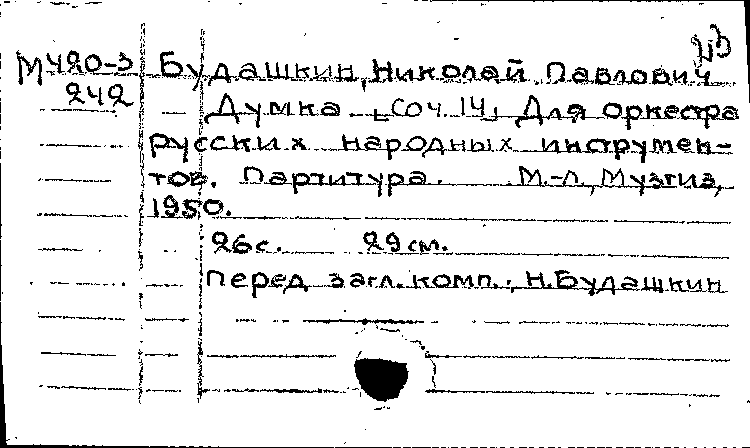 М420-3 Будашкин, Николай Павлович
242 Думка [соч. 14] Для оркестра
русских народных инструмен-
тов. Партитура. М.-Л., Музгиз,
1950.
26 с. 29 см.
Перед загл. комп.: Н. Будашкин